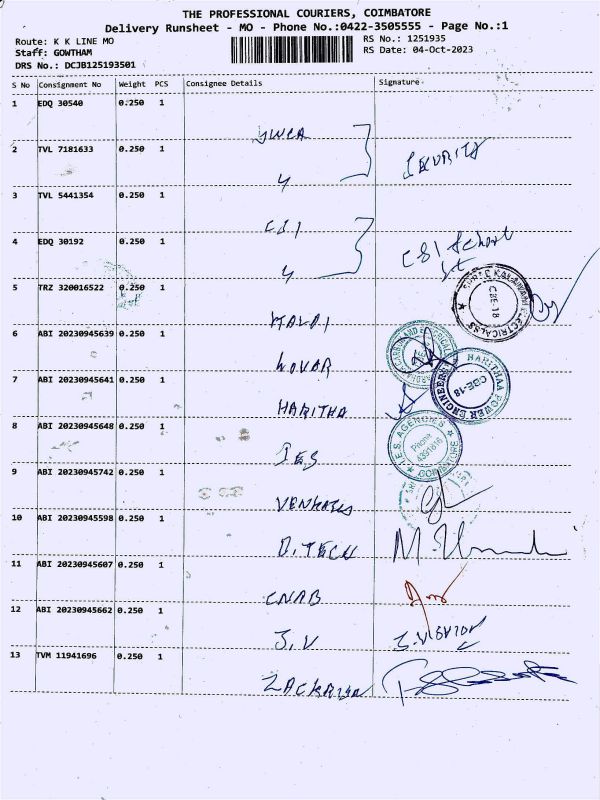 THE PROFESSIONAL COURIERS, COIMBATORE
Delivery Runsheet - MO - Phone No.:0422-3505555 - Page No.:1
Route: K K LINE MO
RS No.: 1251935
Staff: GOWTHAM
RS Date: 04-Oct-2023
DRS No.: DCJB125193501
S No Consignment No Weight PCS Consignee Details Signature
1 EDQ 30540 0.250 1
YWCA
2 TVL 7181633 0.250 1
SECURITY
3 TVL 5441354 0.250 1
CSI
4 EDQ 30192 0.250 1
CSI School
5 TRZ 320016522 0.250 1
CBE-18
ELECTRICALS
KALAI
6 ABI 20230945639 0.250 1
7 ABI 20230945641 0.250 1
HARITHAA POWER ENGINEERS
CBE-18
HARITHA
8 ABI 20230945648 0.250 1
I.E.S. AGENCIES
Phone
4391816
COIMBATORE
IES
9 ABI 20230945742 0.250 1
10 ABI 20230945598 0.250 1
D.TECH
11 ABI 20230945607 0.250 1
CNAB
12 ABI 20230945662 0.250 1
S.V S.VISVION
13 TVM 11941696 0.250 1
ZACKRIYA